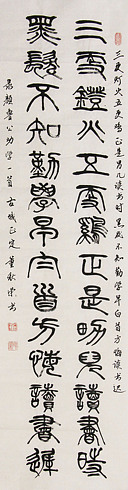 三更灯火五更鸡正是男儿读书时黑发不知勤学早白首方悔读书迟
三更鐙火五更雞正是男兒讀書時
黑髮不知勤學早白首方悔讀書遲
录颜鲁公劝学一首 古城正定 董秋 书